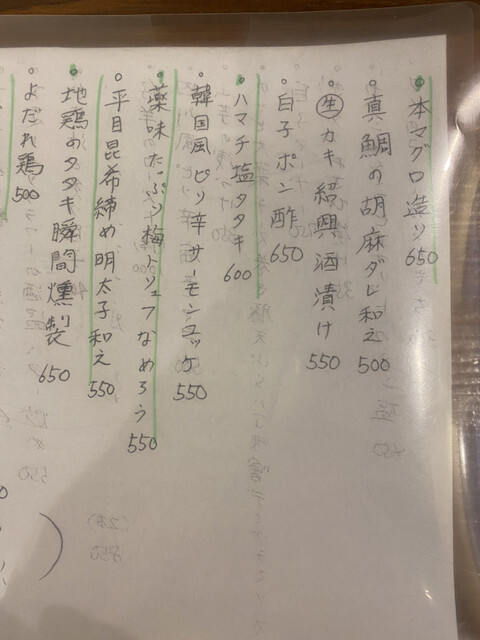 ・本マグロ造り 650
・真鯛の胡麻ダレ和え 500
・生カキ 紹興酒漬け 550
・白子ポン酢 650
・ハマチ塩タタキ 600
・韓国風ピリ辛サーモンユッケ 550
・薬味たっぷり梅トリュフなめろう 550
・平目昆布締め明太子和え 550
・地鶏のタタキ瞬間燻製 650
・よだれ鶏 500